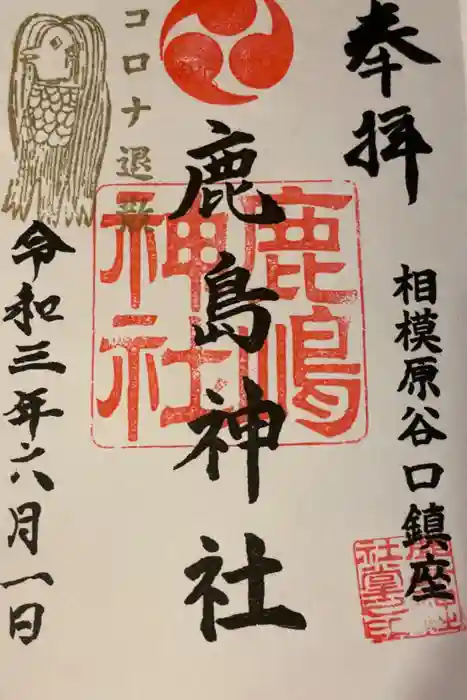 奉拝
相模原谷口鎮座
鹿島神社
鹿嶋神社
コロナ退散
令和三年六月一日